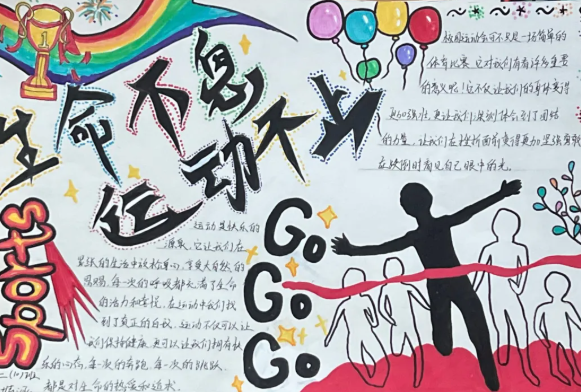 生命不息
运动不止
校园运动会可不只是一场简单的
体育比赛,它对我们有着许多重要
的意义呢!它不仅让我们的身体变得
更加强壮,更让我们深刻体会到了团结
的力量,让我们在挫折面前变得更加坚强勇敢
在跌倒时看见自己眼中的光。
Sports
Go
Go
Go
运动是快乐的
源泉,它让我们在
紧张的生活中放松身心,享受大自然的
恩赐。每一次的呼吸都充满了生命
的活力和喜悦,在运动中我们找
到了真正的自我,运动不仅可以让
我们保持健康,更可以让我们拥有
乐的心态,每一次的奔跑,每一次的跳跃
都是对生命的热爱和追求。
二(10)班
1